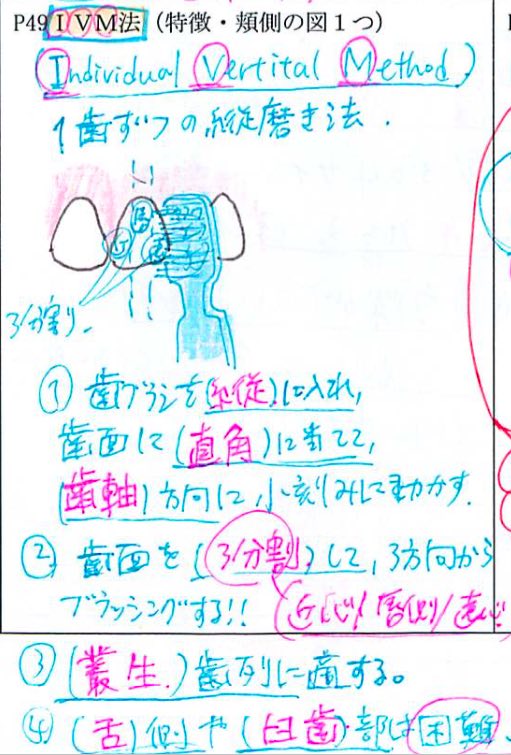 P49 IVM法（特徴・頬側の図１つ）
(Individual Vertital Method)
1歯ずつの縦磨き法.
唇
近 遠
3分割り.
① 歯ブラシを(縦)に入れ,
歯面に(直角)に当てて,
(歯軸)方向に小刻みに動かす.
② 歯面を(3分割)して,3方向から
ブラッシングする!!(近心/唇側/遠心
③ (叢生.)歯列に適する。
④ (舌)側や(臼歯)部は困難.